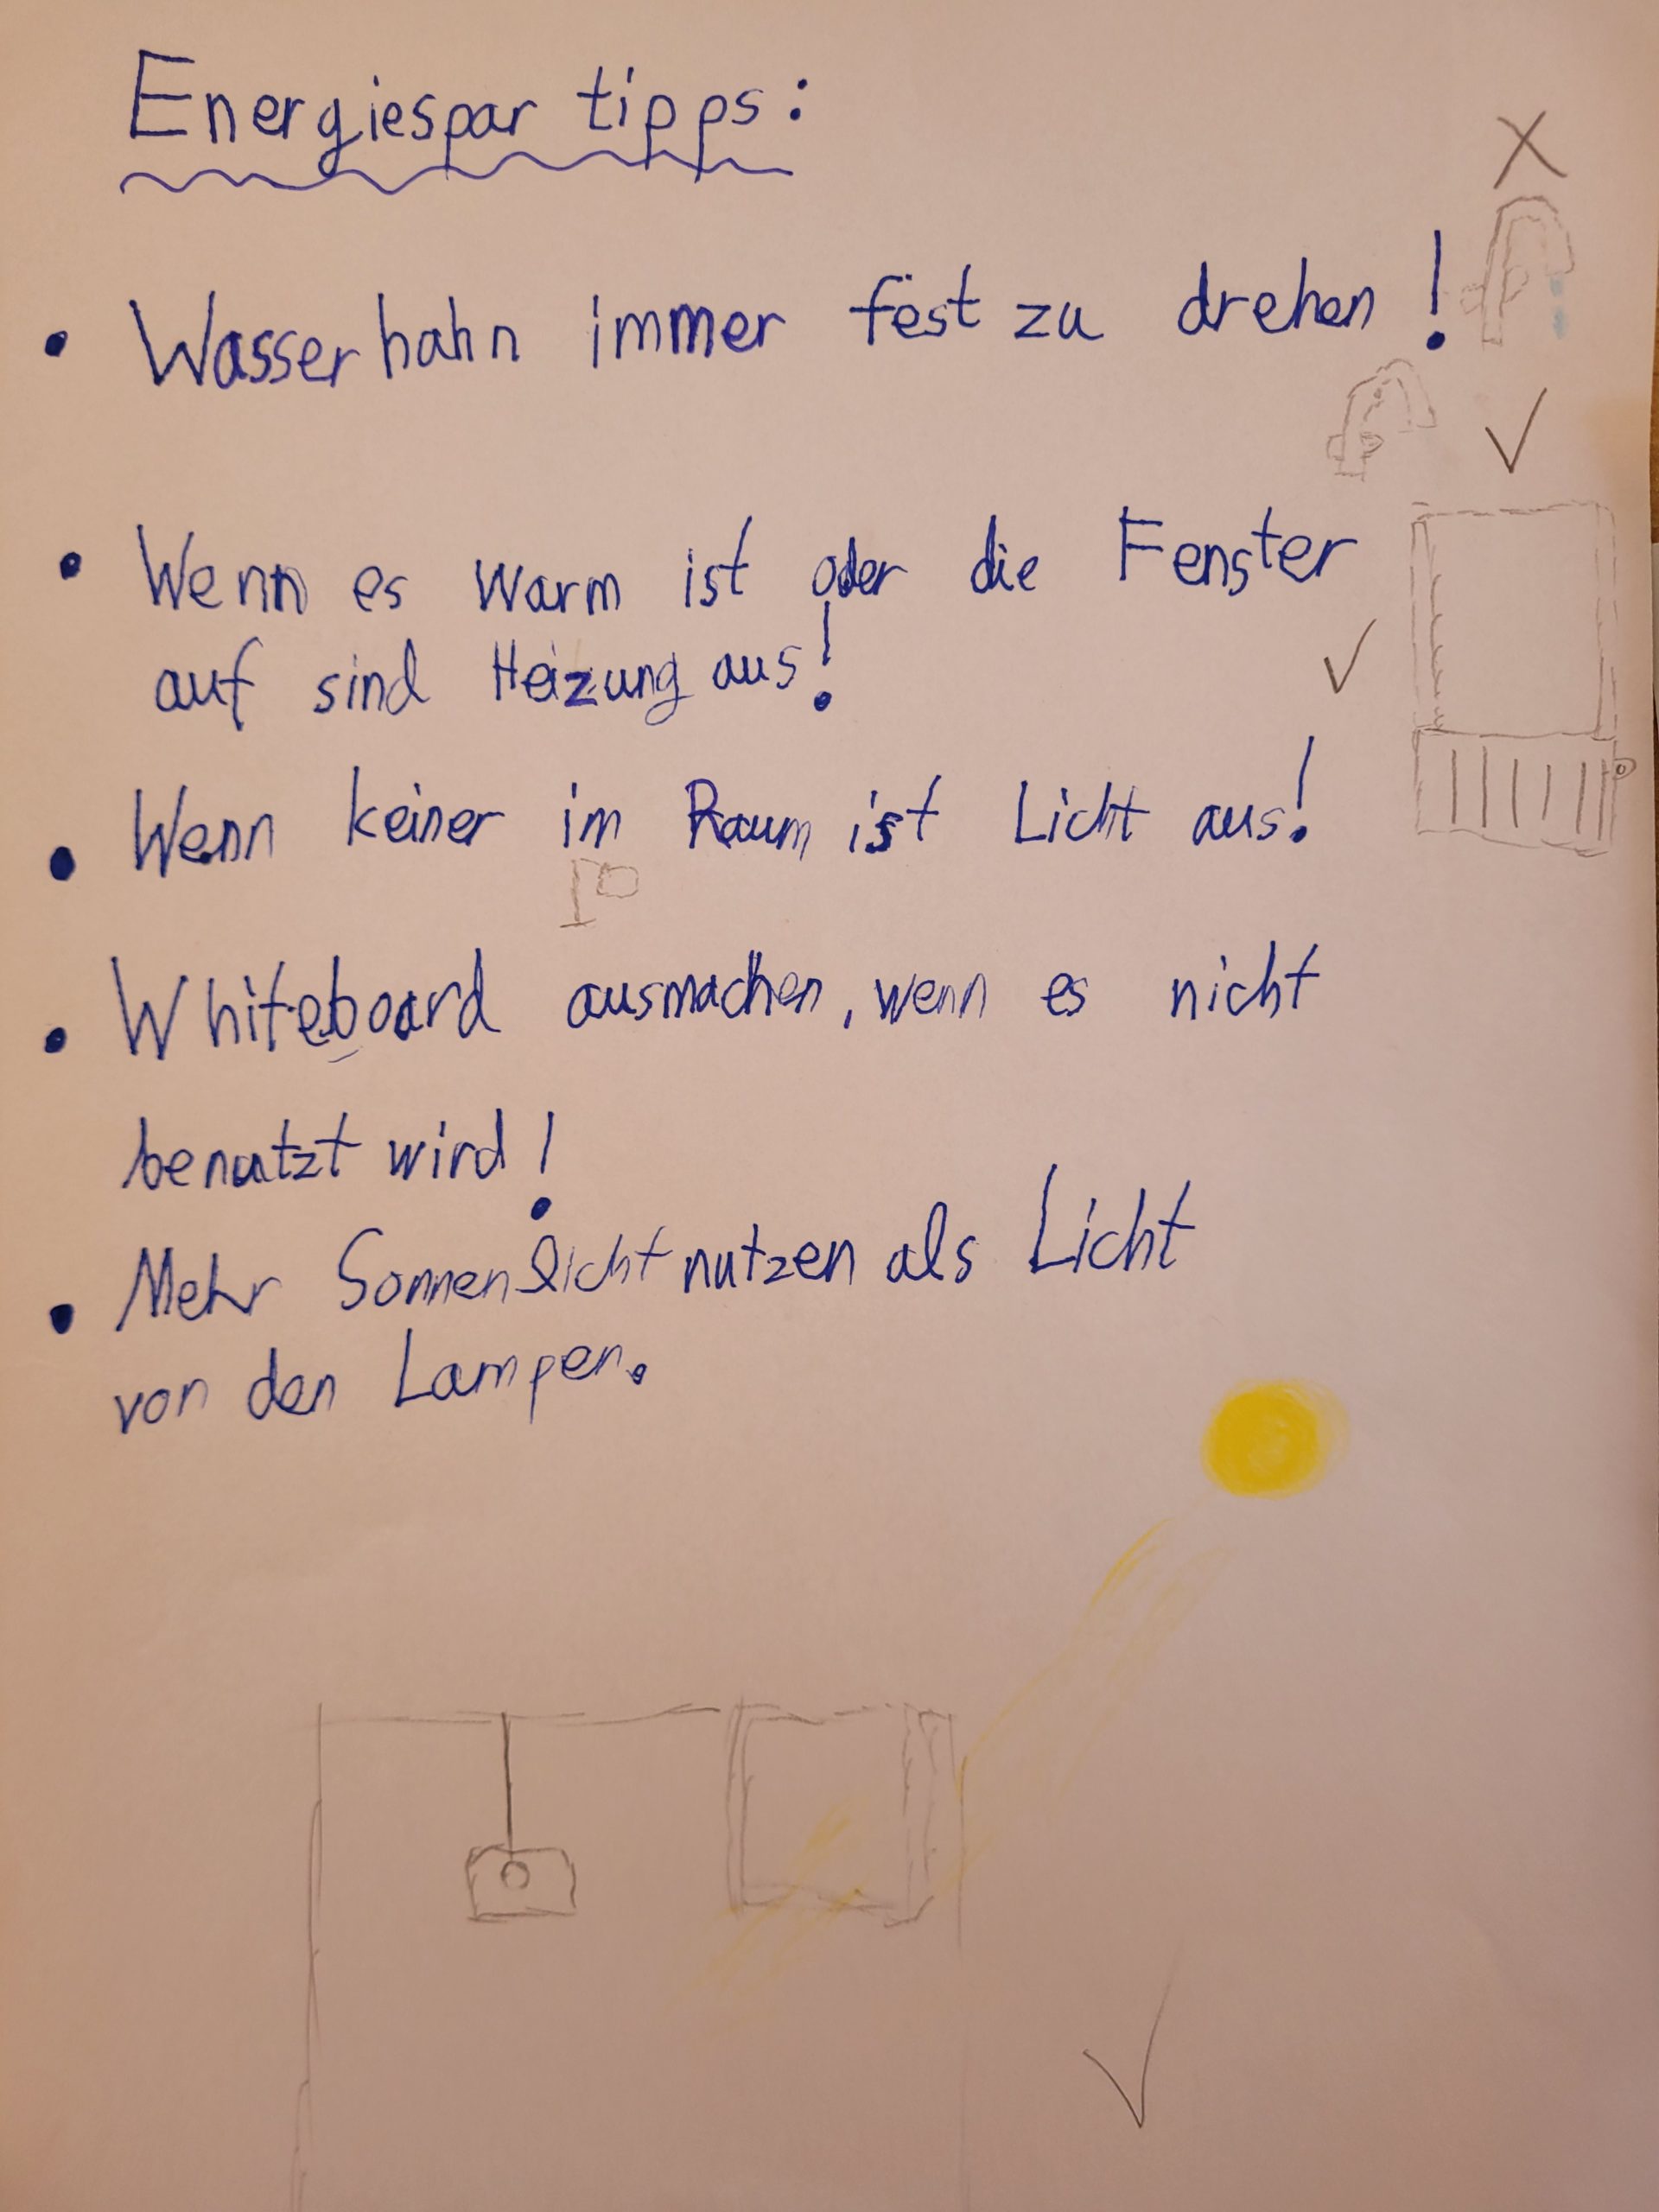 Energiespar tipps:
• Wasserhahn immer fest zu drehen!
• Wenn es warm ist oder die Fenster
auf sind Heizung aus!
• Wenn keiner im Raum ist Licht aus!
• Whiteboard ausmachen, wenn es nicht
benutzt wird!
• Mehr Sonnenlicht nutzen als Licht
von den Lampen.